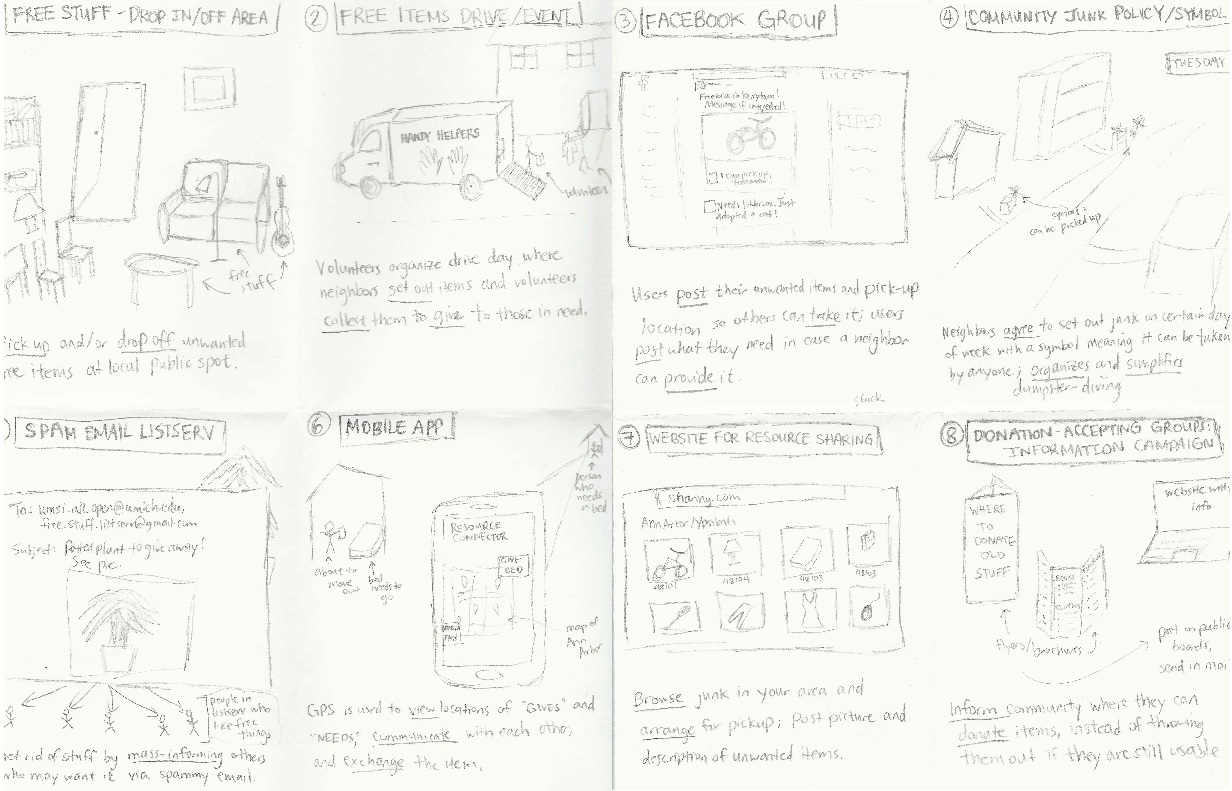 FREE STUFF - DROP IN/OFF AREA
free stuff
ick up and/or drop off unwanted
ee items at local public spot.
② FREE ITEMS DRIVE/EVENT
HANDY HELPERS
volunteers
Volunteers organize drive day where
neighbors set out items and volunteers
collect them to give to those in need.
③ FACEBOOK GROUP
Message if interested!
I can pick up
tomorrow
Need litterbox. Just
adopted a cat!
Users post their unwanted items and pick-up
location so others can take it; users
post what they need in case a neighbor
can provide it.
④ COMMUNITY JUNK POLICY/SYMBOL
TUESDAY
symbol:
can be picked up
Neighbors agree to set out junk on certain day
of week with a symbol meaning it can be taken
by anyone; organizes and simplifies
dumpster-diving
) SPAM EMAIL LISTSERV
To: umsi-all.open@umich.edu,
free.stuff.listserv@gmail.com
Subject: Potted plant to give away!
See pic.
people in
listserv who
like free
things
et rid of stuff by mass-informing others
who may want it via spammy email.
⑥ MOBILE APP
about to
move out
bed
needs to
go
RESOURCE
CONNECTOR
GIVE
BED
person
who
needs
a bed
map of
Ann
Arbor
GPS is used to view locations of "GIVES" and
"NEEDS," communicate with each other,
and exchange the item.
⑦ WEBSITE FOR RESOURCE SHARING
Ann Arbor/Ypsilanti
48104
48103
48103
Browse junk in your area and
arrange for pickup; Post picture and
description of unwanted items.
⑧ DONATION-ACCEPTING GROUPS:
INFORMATION CAMPAIGN
WHERE
TO
DONATE
OLD
STUFF
website with
info
flyers/brochures
post on public
boards,
send in mai
Inform community where they can
donate items, instead of throwing
them out if they are still usable